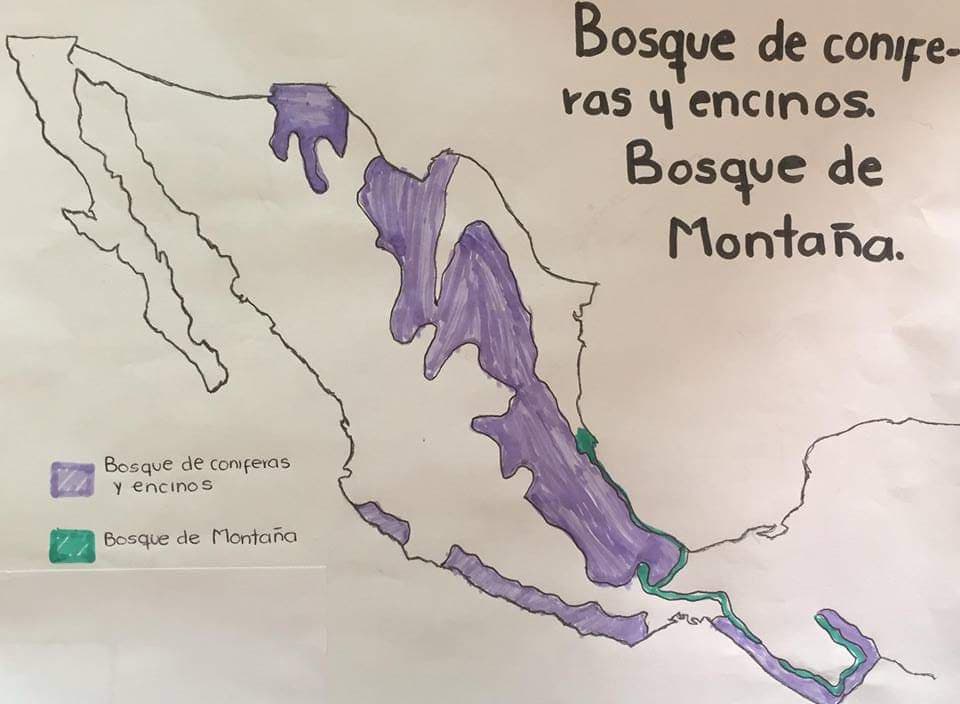 Bosque de conife-
ras y encinos.
Bosque de
Montaña.
Bosque de coniferas
y encinos
Bosque de Montaña